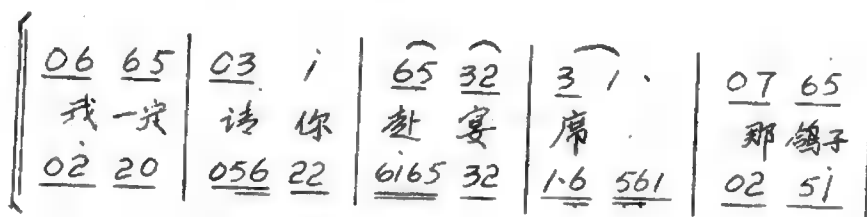 06 65 | 03 i | 65 32 | 3 1· | 07 65
我 一定 请 你 赴 宴 席 · 那 鸽子
02̇ 20 | 056 22 | 6i65 32 | 1·6 561 | 02 5i